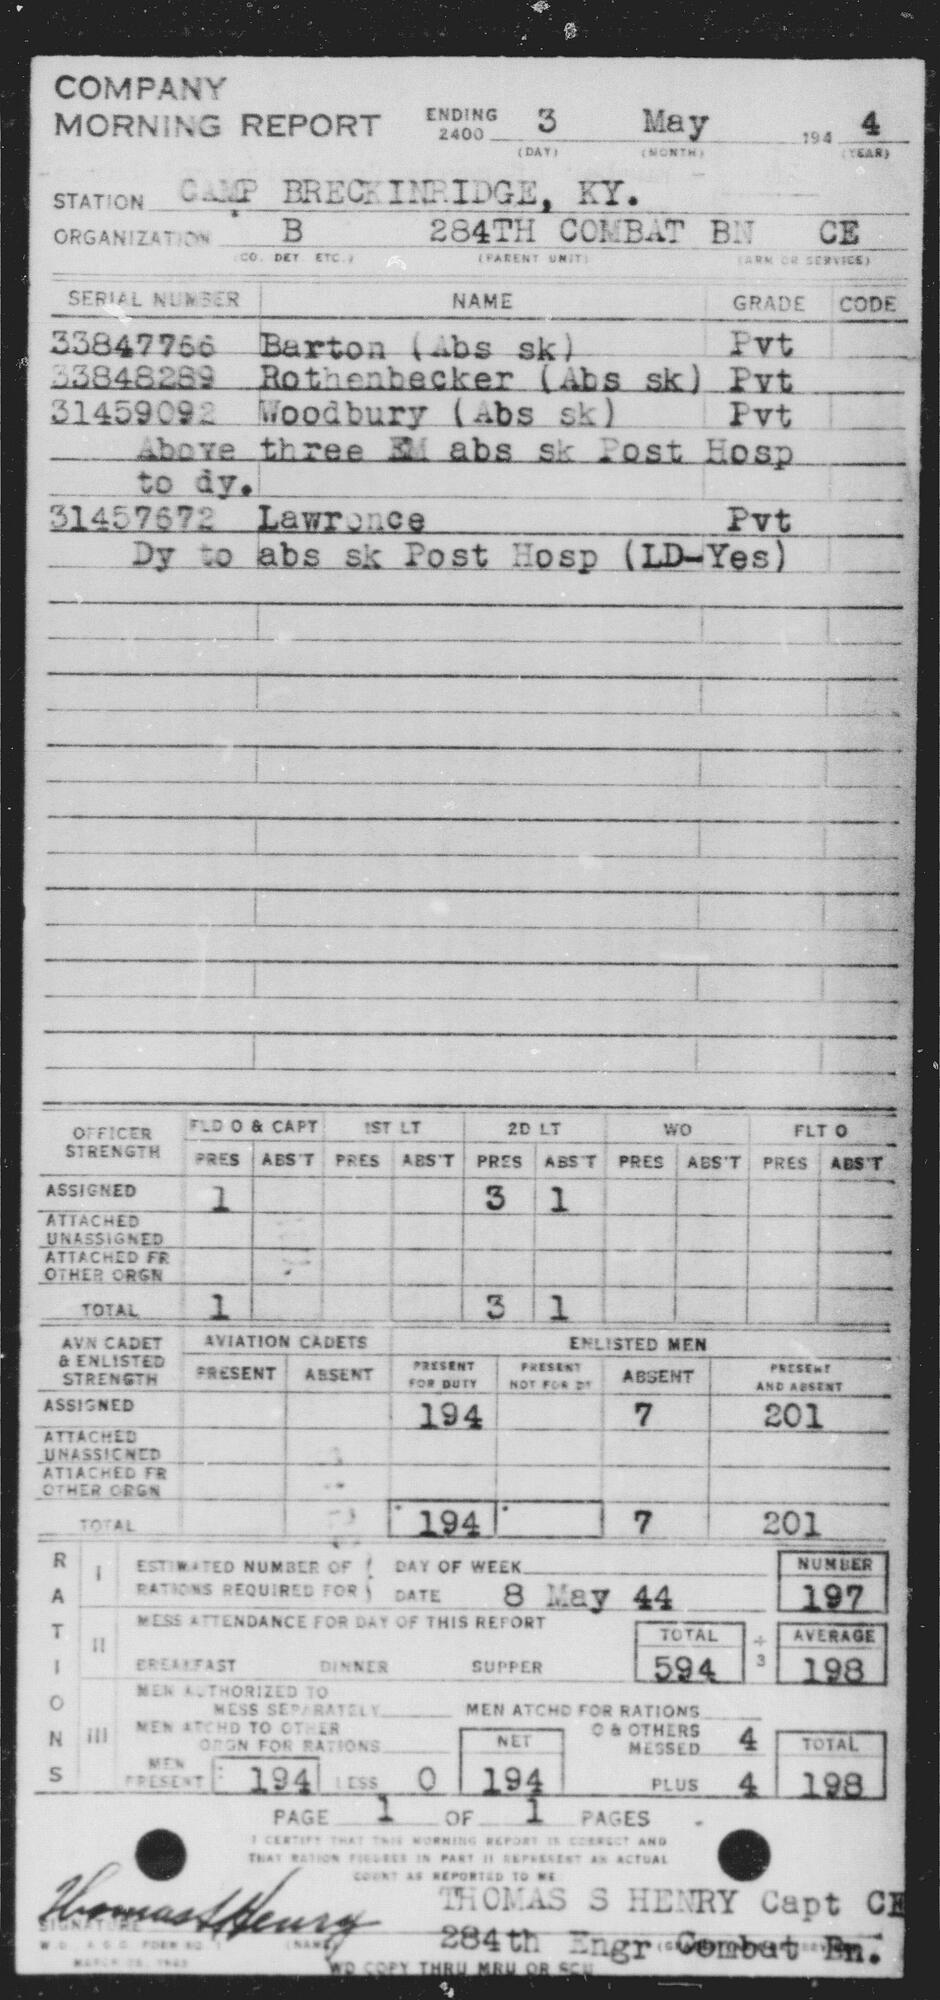 COMPANY
MORNING REPORT ENDING 2400 3 May 194 4
(DAY) (MONTH) (YEAR)
STATION CAMP BRECKINRIDGE, KY.
ORGANIZATION B 284TH COMBAT BN CE
(CO. DET. ETC.) (PARENT UNIT) (ARM OR SERVICE)
SERIAL NUMBER NAME GRADE CODE
33847766 Barton (Abs sk) Pvt
33848289 Rothenbecker (Abs sk) Pvt
31459092 Woodbury (Abs sk) Pvt
Above three EM abs sk Post Hosp
to dy.
31457672 Lawrence Pvt
Dy to abs sk Post Hosp (LD-Yes)
OFFICER STRENGTH FLD O & CAPT 1ST LT 2D LT WO FLT O
PRES ABS'T PRES ABS'T PRES ABS'T PRES ABS'T PRES ABS'T
ASSIGNED 1 3 1
ATTACHED UNASSIGNED
ATTACHED FR OTHER ORGN
TOTAL 1 3 1
AVN CADET & ENLISTED STRENGTH AVIATION CADETS ENLISTED MEN
PRESENT ABSENT PRESENT FOR DUTY PRESENT NOT FOR DY ABSENT PRESENT AND ABSENT
ASSIGNED 194 7 201
ATTACHED UNASSIGNED
ATTACHED FR OTHER ORGN
TOTAL 194 7 201
RATIONS
I ESTIMATED NUMBER OF RATIONS REQUIRED FOR DAY OF WEEK NUMBER
DATE 8 May 44 197
II MESS ATTENDANCE FOR DAY OF THIS REPORT TOTAL ÷ 3 AVERAGE
BREAKFAST DINNER SUPPER 594 198
III MEN AUTHORIZED TO MESS SEPARATELY MEN ATCHD FOR RATIONS
MEN ATCHD TO OTHER ORGN FOR RATIONS NET O & OTHERS MESSED 4 TOTAL
MEN PRESENT 194 LESS 0 194 PLUS 4 198
PAGE 1 OF 1 PAGES
I CERTIFY THAT THIS MORNING REPORT IS CORRECT AND
THAT RATION FIGURES IN PART II REPRESENT AN ACTUAL
COUNT AS REPORTED TO ME
Thomas S Henry THOMAS S HENRY Capt CE
SIGNATURE (NAME) 284th Engr Combat Bn.
W.D., A.G.O. FORM NO. 1
MARCH
WD COPY THRU MRU OR SCU